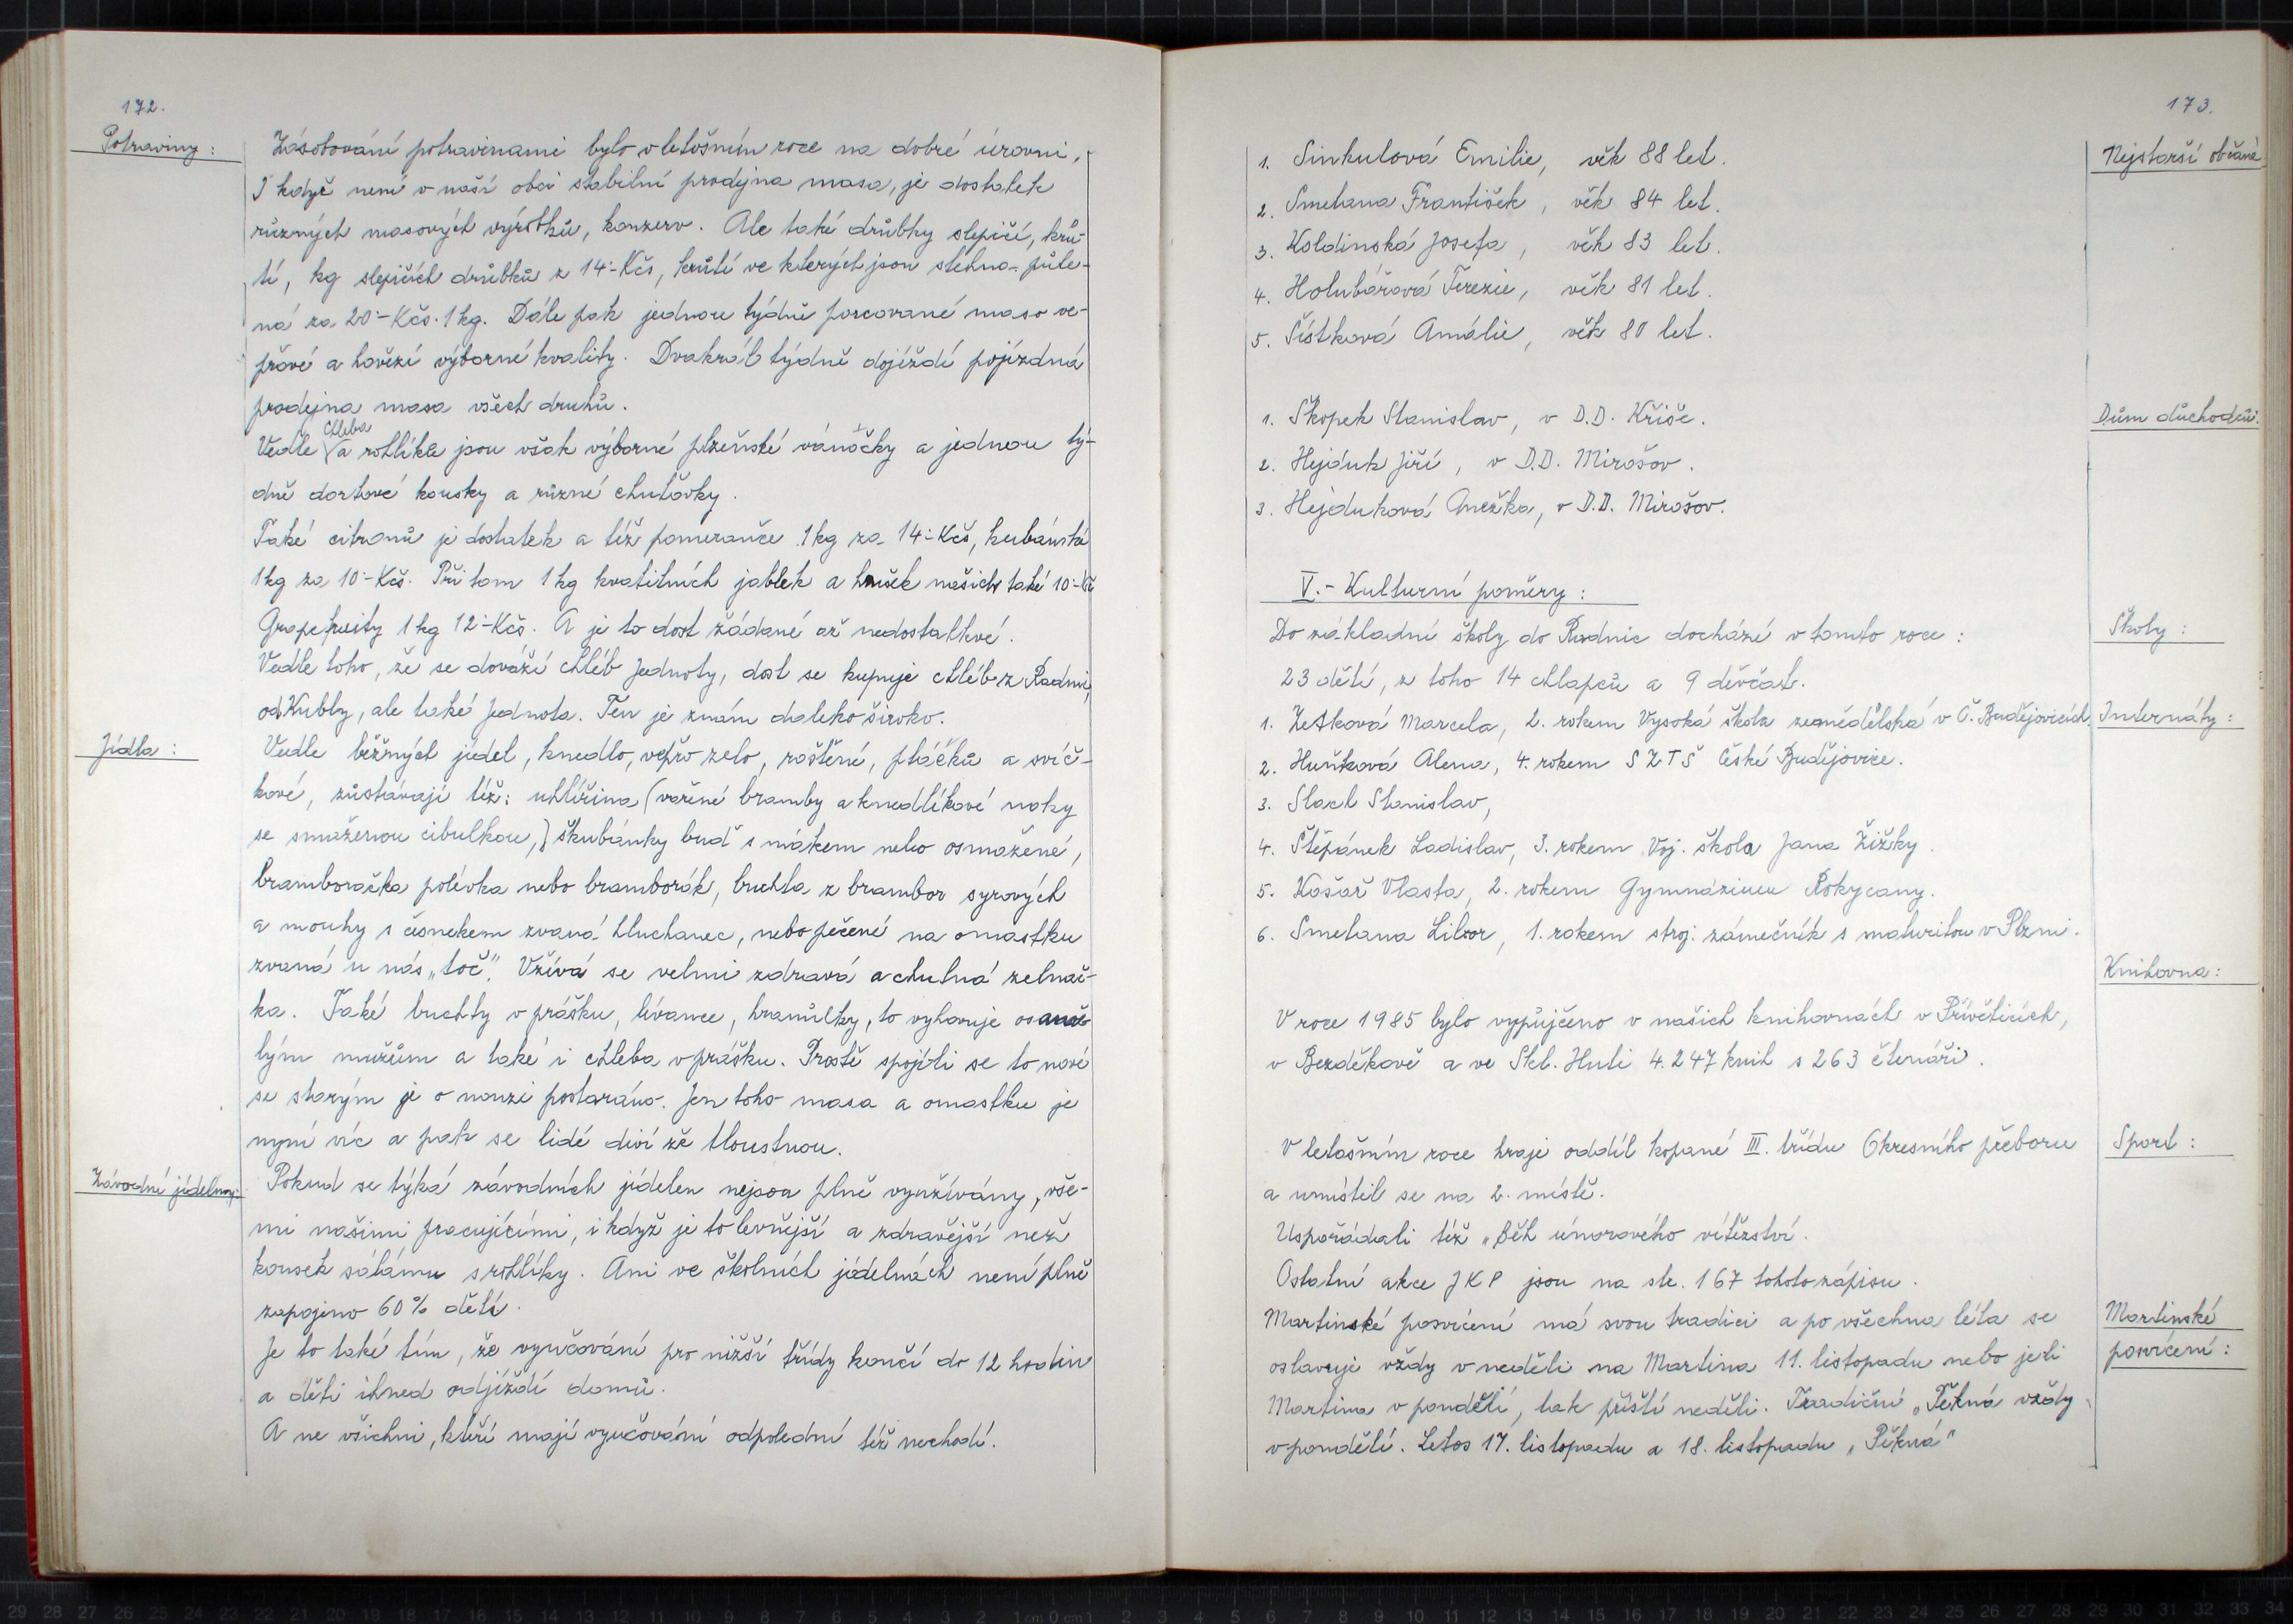 172.
Potraviny:
Zásobování potravinami bylo v letošním roce na dobré úrovni,
I když není v naší obci stabilní prodejna masa, je dostatek
různých masových výrobků, konzerv. Ale také drůbky slepičí, krů-
tí, kg slepičích drůbků z 14.-Kčs, krůtí ve kterých jsou stehna půle-
ná za 20.-Kčs. 1 kg. Dále pak jednou týdně porcované maso ve-
přové a hovězí výborné kvality. Dvakrát týdně dojíždí pojízdná
prodejna masa všech druhů.
Vedle chleba a rohlíků jsou však výborné plzeňské vánočky a jednou tý-
dně dortové kousky a různé chuťovky.
Také citronů je dostatek a též pomeranče 1 kg za 14.-Kčs, kubánské
1 kg za 10.-Kčs. Při tom 1 kg kvalitních jablek a hrušek našich také 10.-Kčs
Grapefruity 1 kg 12.-Kčs. A je to dost žádané až nedostatkové.
Vedle toho, že se dováží chléb Jednoty, dost se kupuje chléb z Radnic,
od Kubly, ale také Jednota. Ten je znám daleko široko.
Jídla:
Vedle běžných jídel, knedlo, vepřo zelo, roštěné, ptáčků a svíč-
kové, zůstávají též: uhlířina (vařené brambory a knedlíkové noky
se smaženou cibulkou,) škubánky buď s mákem nebo osmažené,
bramboračka polévka nebo bramborák, buchta z brambor syrových
a mouky s česnekem zvaná hluchanec, nebo pečené na omastku
zvaná u nás „toč." Užívá se velmi zdravá a chutná zelnač-
ka. Také buchty v prášku, lívance, hranůlky, to vyhovuje osamě-
lým mužům a také i chleba v prášku. Prostě spojí-li se to nové
se starým je o nouzi postaráno. Jen toho masa a omastku je
nyní víc a pak se lidé diví že tloustnou.
Závodní jídelny:
Pokud se týká závodních jídelen nejsou plně využívány, vše-
mi našimi pracujícími, i když je to levnější a zdravější než
kousek sálámu s rohlíky. Ani ve školních jídelnách není plně
zapojeno 60% dětí.
Je to také tím, že vyučování pro nižší třídy končí do 12 hodin
a děti ihned odjíždí domů.
A ne všichni, kteří mají vyučování odpolední též nechodí.
173.
Nejstarší občané
1. Sinkulová Emilie, věk 88 let.
2. Smetana František, věk 84 let.
3. Koldinská Josefa, věk 83 let.
4. Holubářová Terezie, věk 81 let.
5. Šístková Amálie, věk 80 let.
Dům důchodců:
1. Škopek Stanislav, v D.D. Kříše.
2. Hejduk Jiří, v D.D. Mirošov.
3. Hejduková Anežka, v D.D. Mirošov.
V.- Kulturní poměry:
Školy:
Do základní školy do Radnic dochází v tomto roce:
23 dětí, z toho 14 chlapců a 9 děvčat.
Internáty:
1. Zetková Marcela, 2. rokem Vysoká škola zemědělská v Č. Budějovicích.
2. Huňková Alena, 4. rokem SZTŠ České Budějovice.
3. Slach Stanislav,
4. Štěpánek Ladislav, 3. rokem Voj. škola Jana Žižky.
5. Košař Vlasta, 2. rokem Gymnázium Rokycany.
6. Smetana Libor, 1. rokem stroj. zámečník s maturitou v Plzni.
Knihovna:
V roce 1985 bylo vypůjčeno v našich knihovnách v Přívěticích,
v Bezděkově a ve Skl. Huti 4.247 knih s 263 čtenáři.
Sport:
V letošním roce hraje oddíl kopané III. třídu Okresního přeboru
a umístil se na 2. místě.
Uspořádali též „Běh únorového vítězství.
Ostatní akce JKP jsou na str. 167 tohoto zápisu.
Martinské
posvícení:
Martinské posvícení má svou tradici a po všechna léta se
oslavuje vždy v neděli na Martina 11. listopadu nebo je-li
Martina v pondělí, tak příští neděli. Tradiční „Pěkná vždy
v pondělí. Letos 17. listopadu a 18. listopadu „Pěkná"